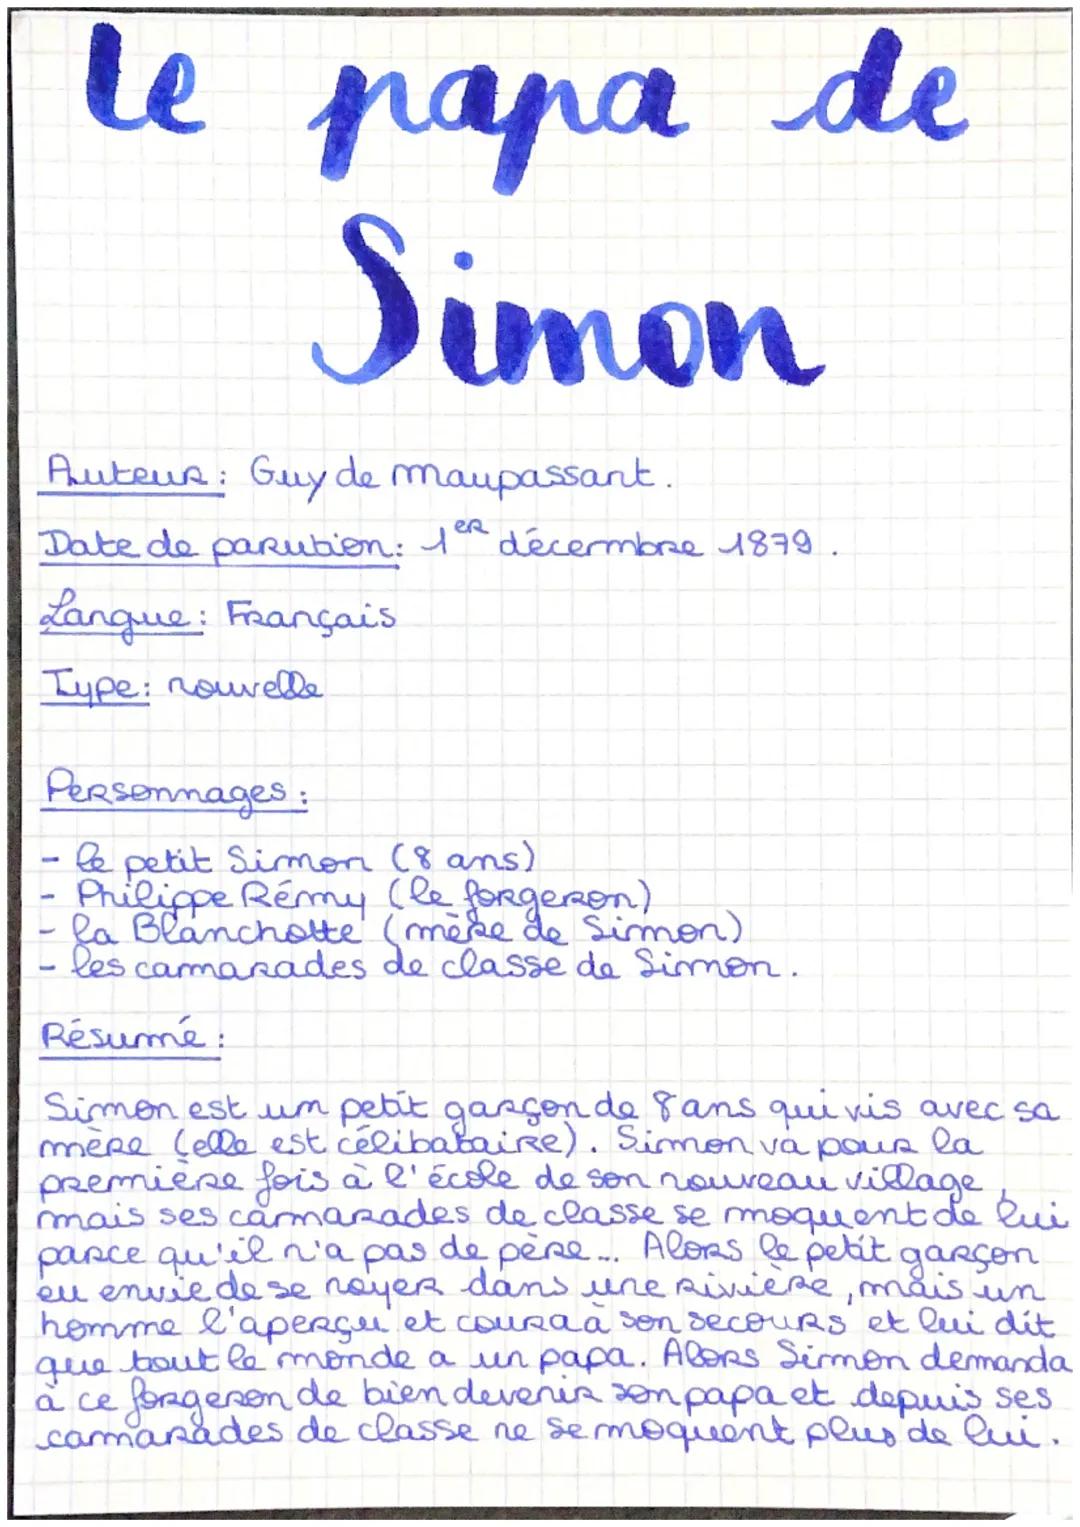 Le papa de
Simon
Auteur : Guy de Maupassant.
Date de parution : 1er décembre 1879.
Langue : Français
Type : nouvelle
Personnages :
- le petit Simon (8 ans)
- Philippe Rémy (le forgeron)
- la Blanchotte (mère de Simon)
- les camarades de classe de Simon.
Résumé :
Simon est un petit garçon de 8 ans qui vis avec sa
mère (elle est célibataire). Simon va pour la
première fois à l'école de son nouveau village,
mais ses camarades de classe se moquent de lui
parce qu'il n'a pas de père... Alors le petit garçon
eu envie de se noyer dans une rivière, mais un
homme l'aperçu et coura à son secours et lui dit
que tout le monde a un papa. Alors Simon demanda
à ce forgeron de bien devenir son papa et depuis ses
camarades de classe ne se moquent plus de lui.